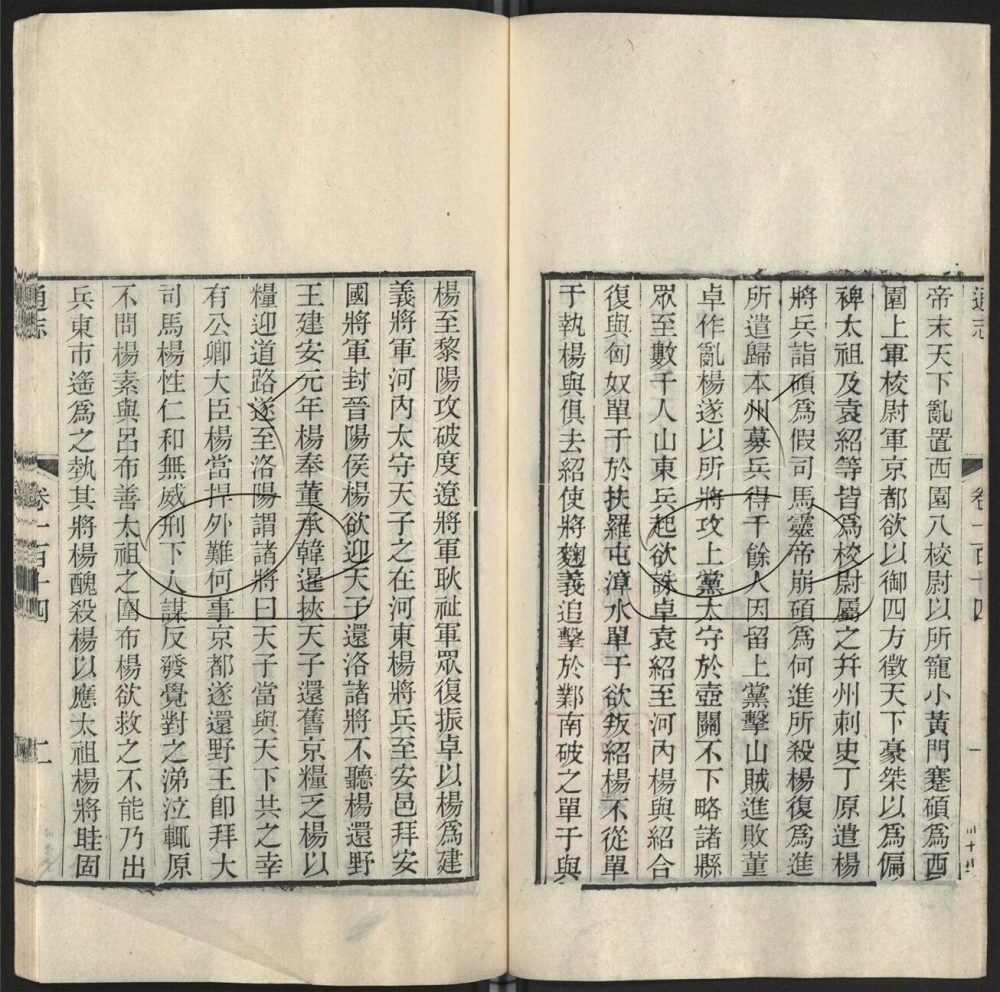 通志
卷一百十四
一
帝末天下亂置西園八校尉以所寵小黃門蹇碩爲西
園上軍校尉軍京都欲以御四方徵天下豪桀以爲偏
裨太祖及袁紹等皆爲校尉屬之幷州刺史丁原遣楊
將兵詣碩爲假司馬靈帝崩碩爲何進所殺楊復爲進
所遣歸本州募兵得千餘人因留上黨擊山賊進敗董
卓作亂楊遂以所將攻上黨太守於壺關不下略諸縣
眾至數千人山東兵起欲誅卓袁紹至河內楊與紹合
復與匈奴單于於扶羅屯漳水單于欲叛紹楊不從單
于執楊與俱去紹使將麴義追擊於鄴南破之單于與
楊至黎陽攻破度遼將軍耿祉軍眾復振卓以楊爲建
義將軍河內太守天子之在河東楊將兵至安邑拜安
國將軍封晉陽侯楊欲迎天子還洛諸將不聽楊還野
王建安元年楊奉董承韓暹挾天子還舊京糧乏楊以
糧迎道路遂至洛陽謂諸將曰天子當與天下共之幸
有公卿大臣楊當捍外難何事京都遂還野王卽拜大
司馬楊性仁和無威刑下人謀反發覺對之涕泣輒原
不問楊素與呂布善太祖之圍布楊欲救之不能乃出
兵東市遙爲之埶其將楊醜殺楊以應太祖楊將眭固
通志
卷一百十四
二